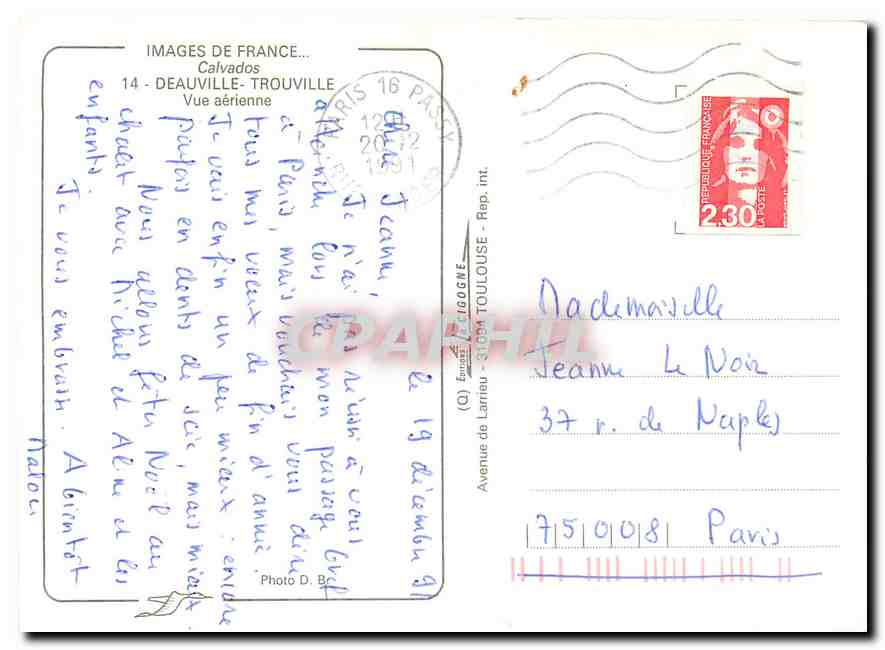 IMAGES DE FRANCE...
Calvados
14 - DEAUVILLE - TROUVILLE
Vue aérienne
le 19 décembre 91
Chère Jeanne,
Je n'ai pas réussi à vous
atteindre lors de mon passage bref
à Paris, mais vouchais vous dire
tous mes voeux de fin d'année.
Je vais enfin un peu mieux : encore
parfois en dents de scie, mais mieux.
Nous allons fêter Noël au
chalet avec Michel et Aline et les
enfants.
Je vous embrasse. A bientôt
Malou
Photo D. B
(Q) Editions LA CIGOGNE
Avenue de Larrieu - 31094 TOULOUSE - Rep. int.
PARIS 16 PASSY
20 12
1991
REPUBLIQUE FRANÇAISE
2,30
LA POSTE
Mademoiselle
Jeanne Le Noir
37 r. de Naples
75008 Paris
CPAPHIL